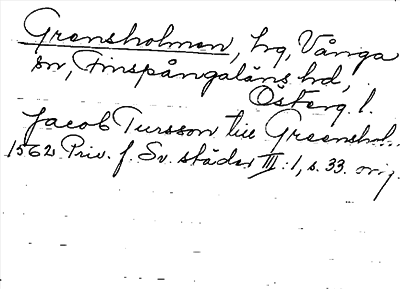 Grensholmen, hg, Vånga
sn, Finspångaläns hd,
Österg. l.
Jacob Tursson till Greenshol..
1562. Priv. f. Sv. städer III:1, s. 33. orig.